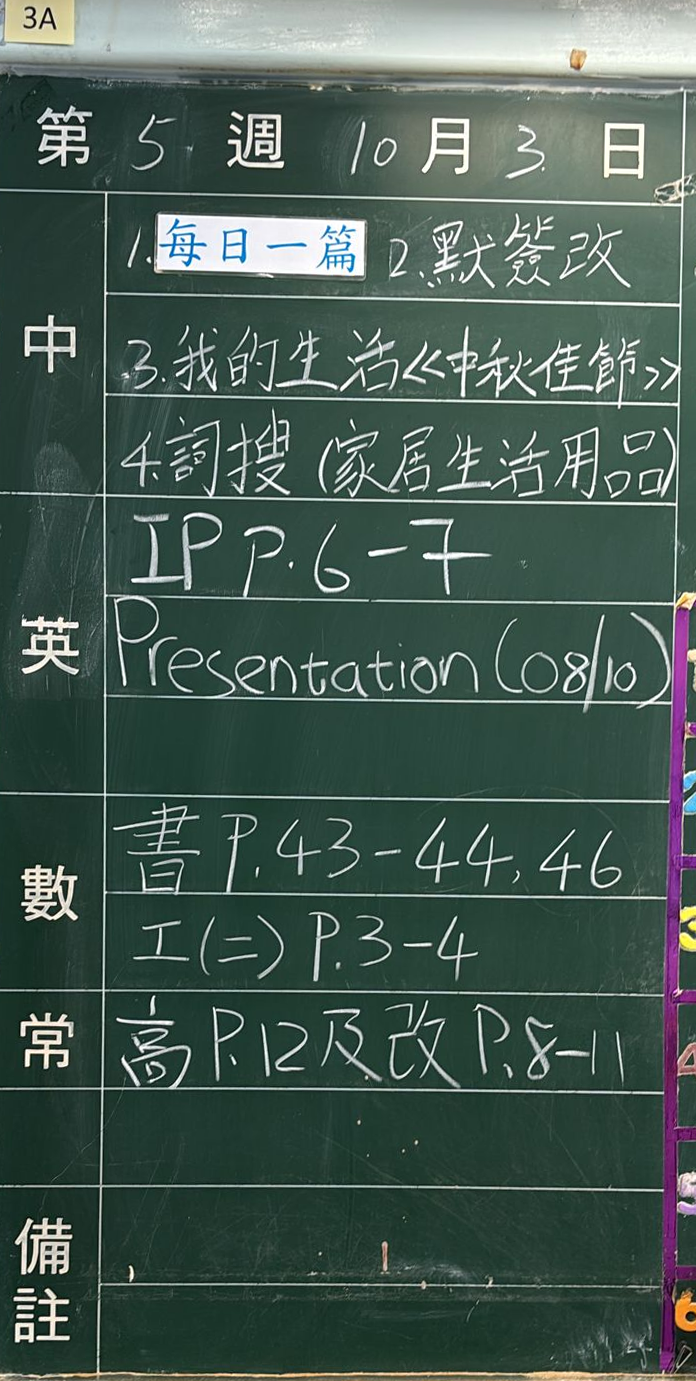 3A
第 5 週 10 月 3 日
中
1. 每日一篇 2. 默簽改
3. 我的生活《中秋佳節》
4. 詞搜 (家居生活用品)
英
IP P.6-7
Presentation (08/10)
數
書 P.43-44, 46
工(二) P.3-4
常
高 P.12及改 P.8-11
備註